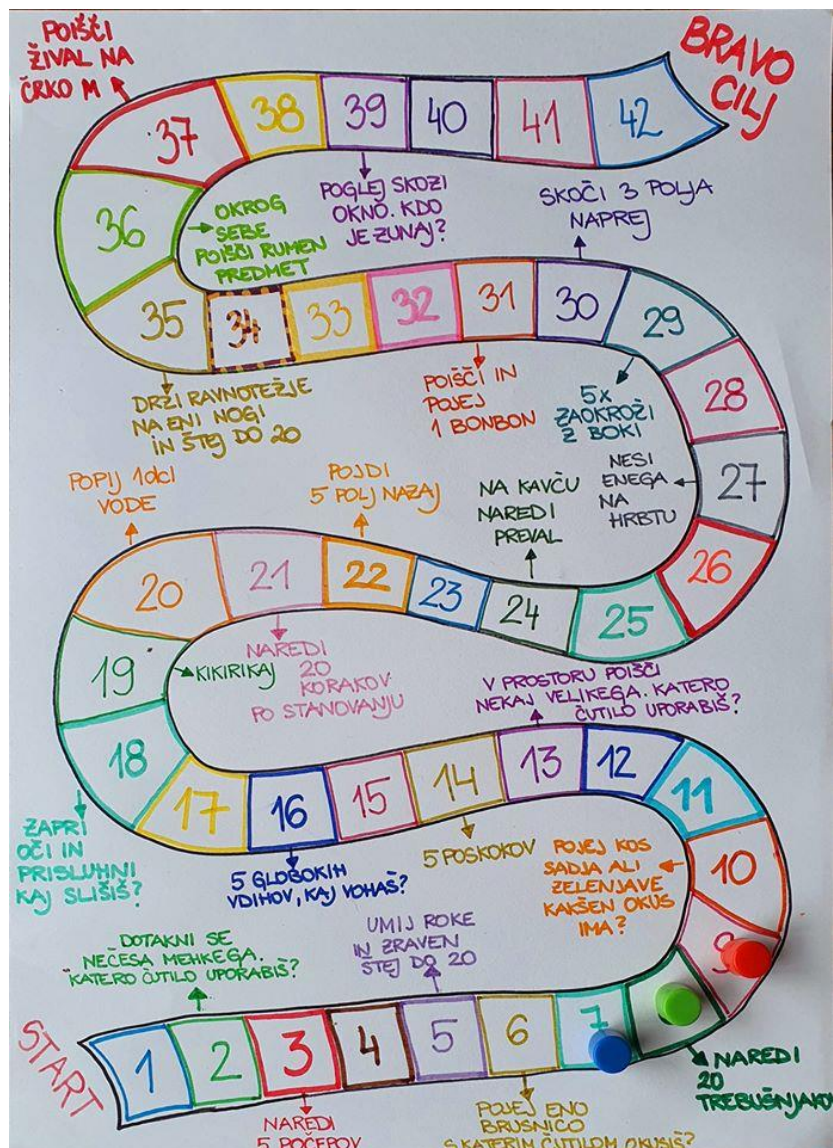 POIŠČI
ŽIVAL NA
ČRKO M
BRAVO
CILJ
37
38
39
40
41
42
36
OKROG
SEBE
POIŠČI RUMEN
PREDMET
POGLEJ SKOZI
OKNO. KDO
JE ZUNAJ?
SKOČI 3 POLJA
NAPREJ
35
34
33
32
31
30
29
DRŽI RAVNOTEŽJE
NA ENI NOGI
IN ŠTEJ DO 20
POIŠČI IN
POJEJ
1 BONBON
5x
ZAOKROŽI
Z BOKI
28
27
NESI
ENEGA
NA
HRBTU
26
POPIJ 1dcl
VODE
POJDI
5 POLJ NAZAJ
NA KAVČU
NAREDI
PREVAL
20
21
22
23
24
25
19
KIKIRIKAJ
NAREDI
20
KORAKOV
PO STANOVANJU
V PROSTORU POIŠČI
NEKAJ VELIKEGA. KATERO
ČUTILO UPORABIŠ?
18
17
16
15
14
13
12
11
ZAPRI
OČI IN
PRISLUHNI
KAJ SLIŠIŠ?
5 GLOBOKIH
VDIHOV, KAJ VOHAŠ?
5 POSKOKOV
POJEJ KOS
SADJA ALI
ZELENJAVE
KAKŠEN OKUS
IMA?
10
9
DOTAKNI SE
NEČESA MEHKEGA.
KATERO ČUTILO UPORABIŠ?
UMIJ ROKE
IN ZRAVEN
ŠTEJ DO 20
START
1
2
3
4
5
6
7
NAREDI
20
TREBUŠNJAKOV
NAREDI
5 POČEPOV
POJEJ ENO
BRUSNICO
S KATERIM ČUTILOM OKUSIŠ?